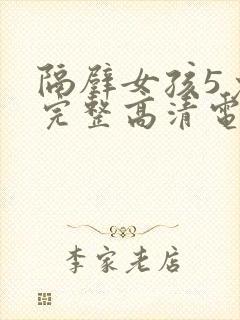 隔壁女孩5
完整高清電
李家老店